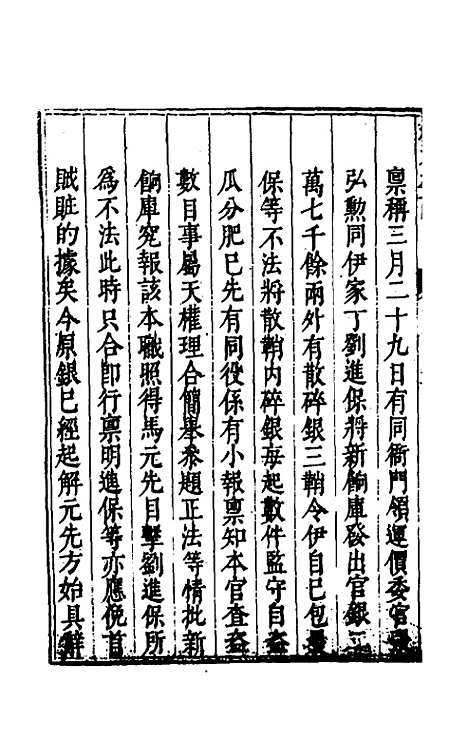 稟稱三月二十九日有同衙門領運價委官
弘勲同伊家丁劉進保將新餉庫發出官銀
萬七千餘兩外有散碎銀三鞘令伊自巳包
保等不法將散鞘內碎銀每起數件監守自盗
瓜分肥巳先有同役係有小報稟知本官查盗
數目事屬天權理合簡舉叅題正法等情批新
餉庫究報該本職照得馬元先目擊劉進保所
為不法此時只合卽行稟明進保等亦應俛首
賊賍的據矣今原銀巳經起解元先方始具辭